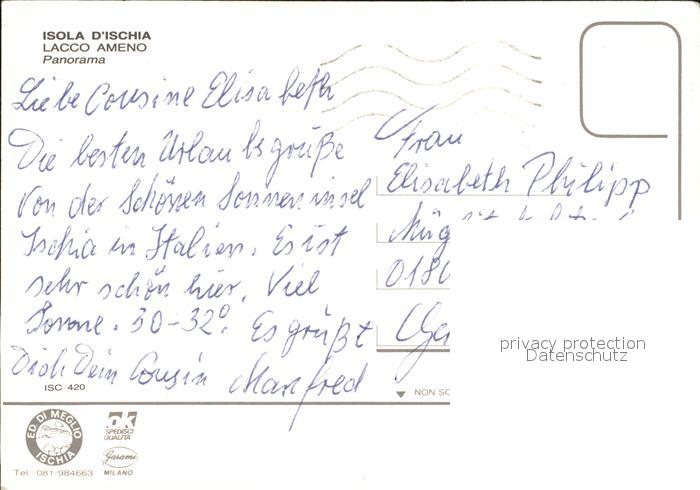 ISOLA D'ISCHIA
LACCO AMENO
Panorama
Liebe Cousine Elisabeth
Die besten Urlaubsgrüße
von der schönen Sonneninsel
Ischia in Italien. Es ist
sehr schön hier. Viel
Sonne. 30-32°. Es grüßt
Dich Dein Cousin Manfred
Frau
Elisabeth Philipp
0180
privacy protection
Datenschutz
ISC 420
NON SC
ED. DI MEGLIO
ISCHIA
Tel. 081/984663
ok
SPEDISCI
QUALITA'
Garami
MILANO